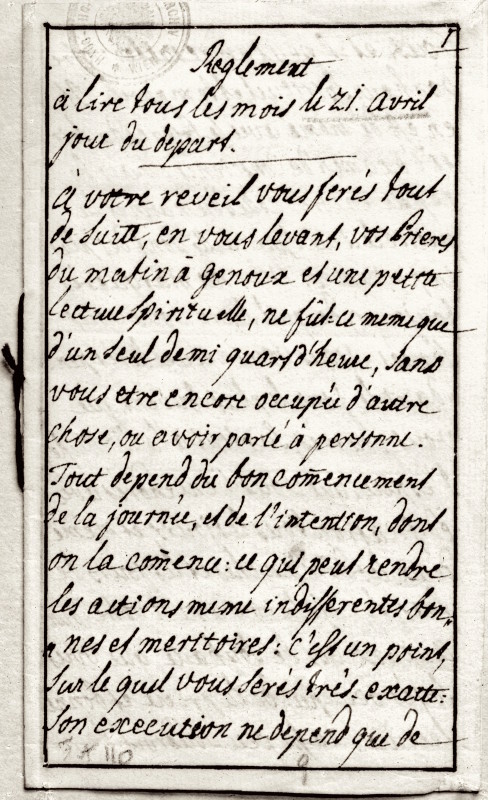 1
Reglement
à lire tous les mois le 21. Avril
jour du depart.
à votre reveil vous ferés tout
de suitte, en vous levant, vos Prieres
du matin à genoux et une petite
lecture spirituelle, ne fût-ce meme que
d'un seul demi quart d'heure, sans
vous etre encore occupée d'autre
chose, ou avoir parlé à personne.
Tout depend du bon com̃encement
de la journée, et de l'intention, dont
on la com̃ence: ce qui peut rendre
les actions meme indifferentes bon-
nes et meritoires: c'est un point,
sur le quel vous serés très-exacte:
son execution ne depend que de